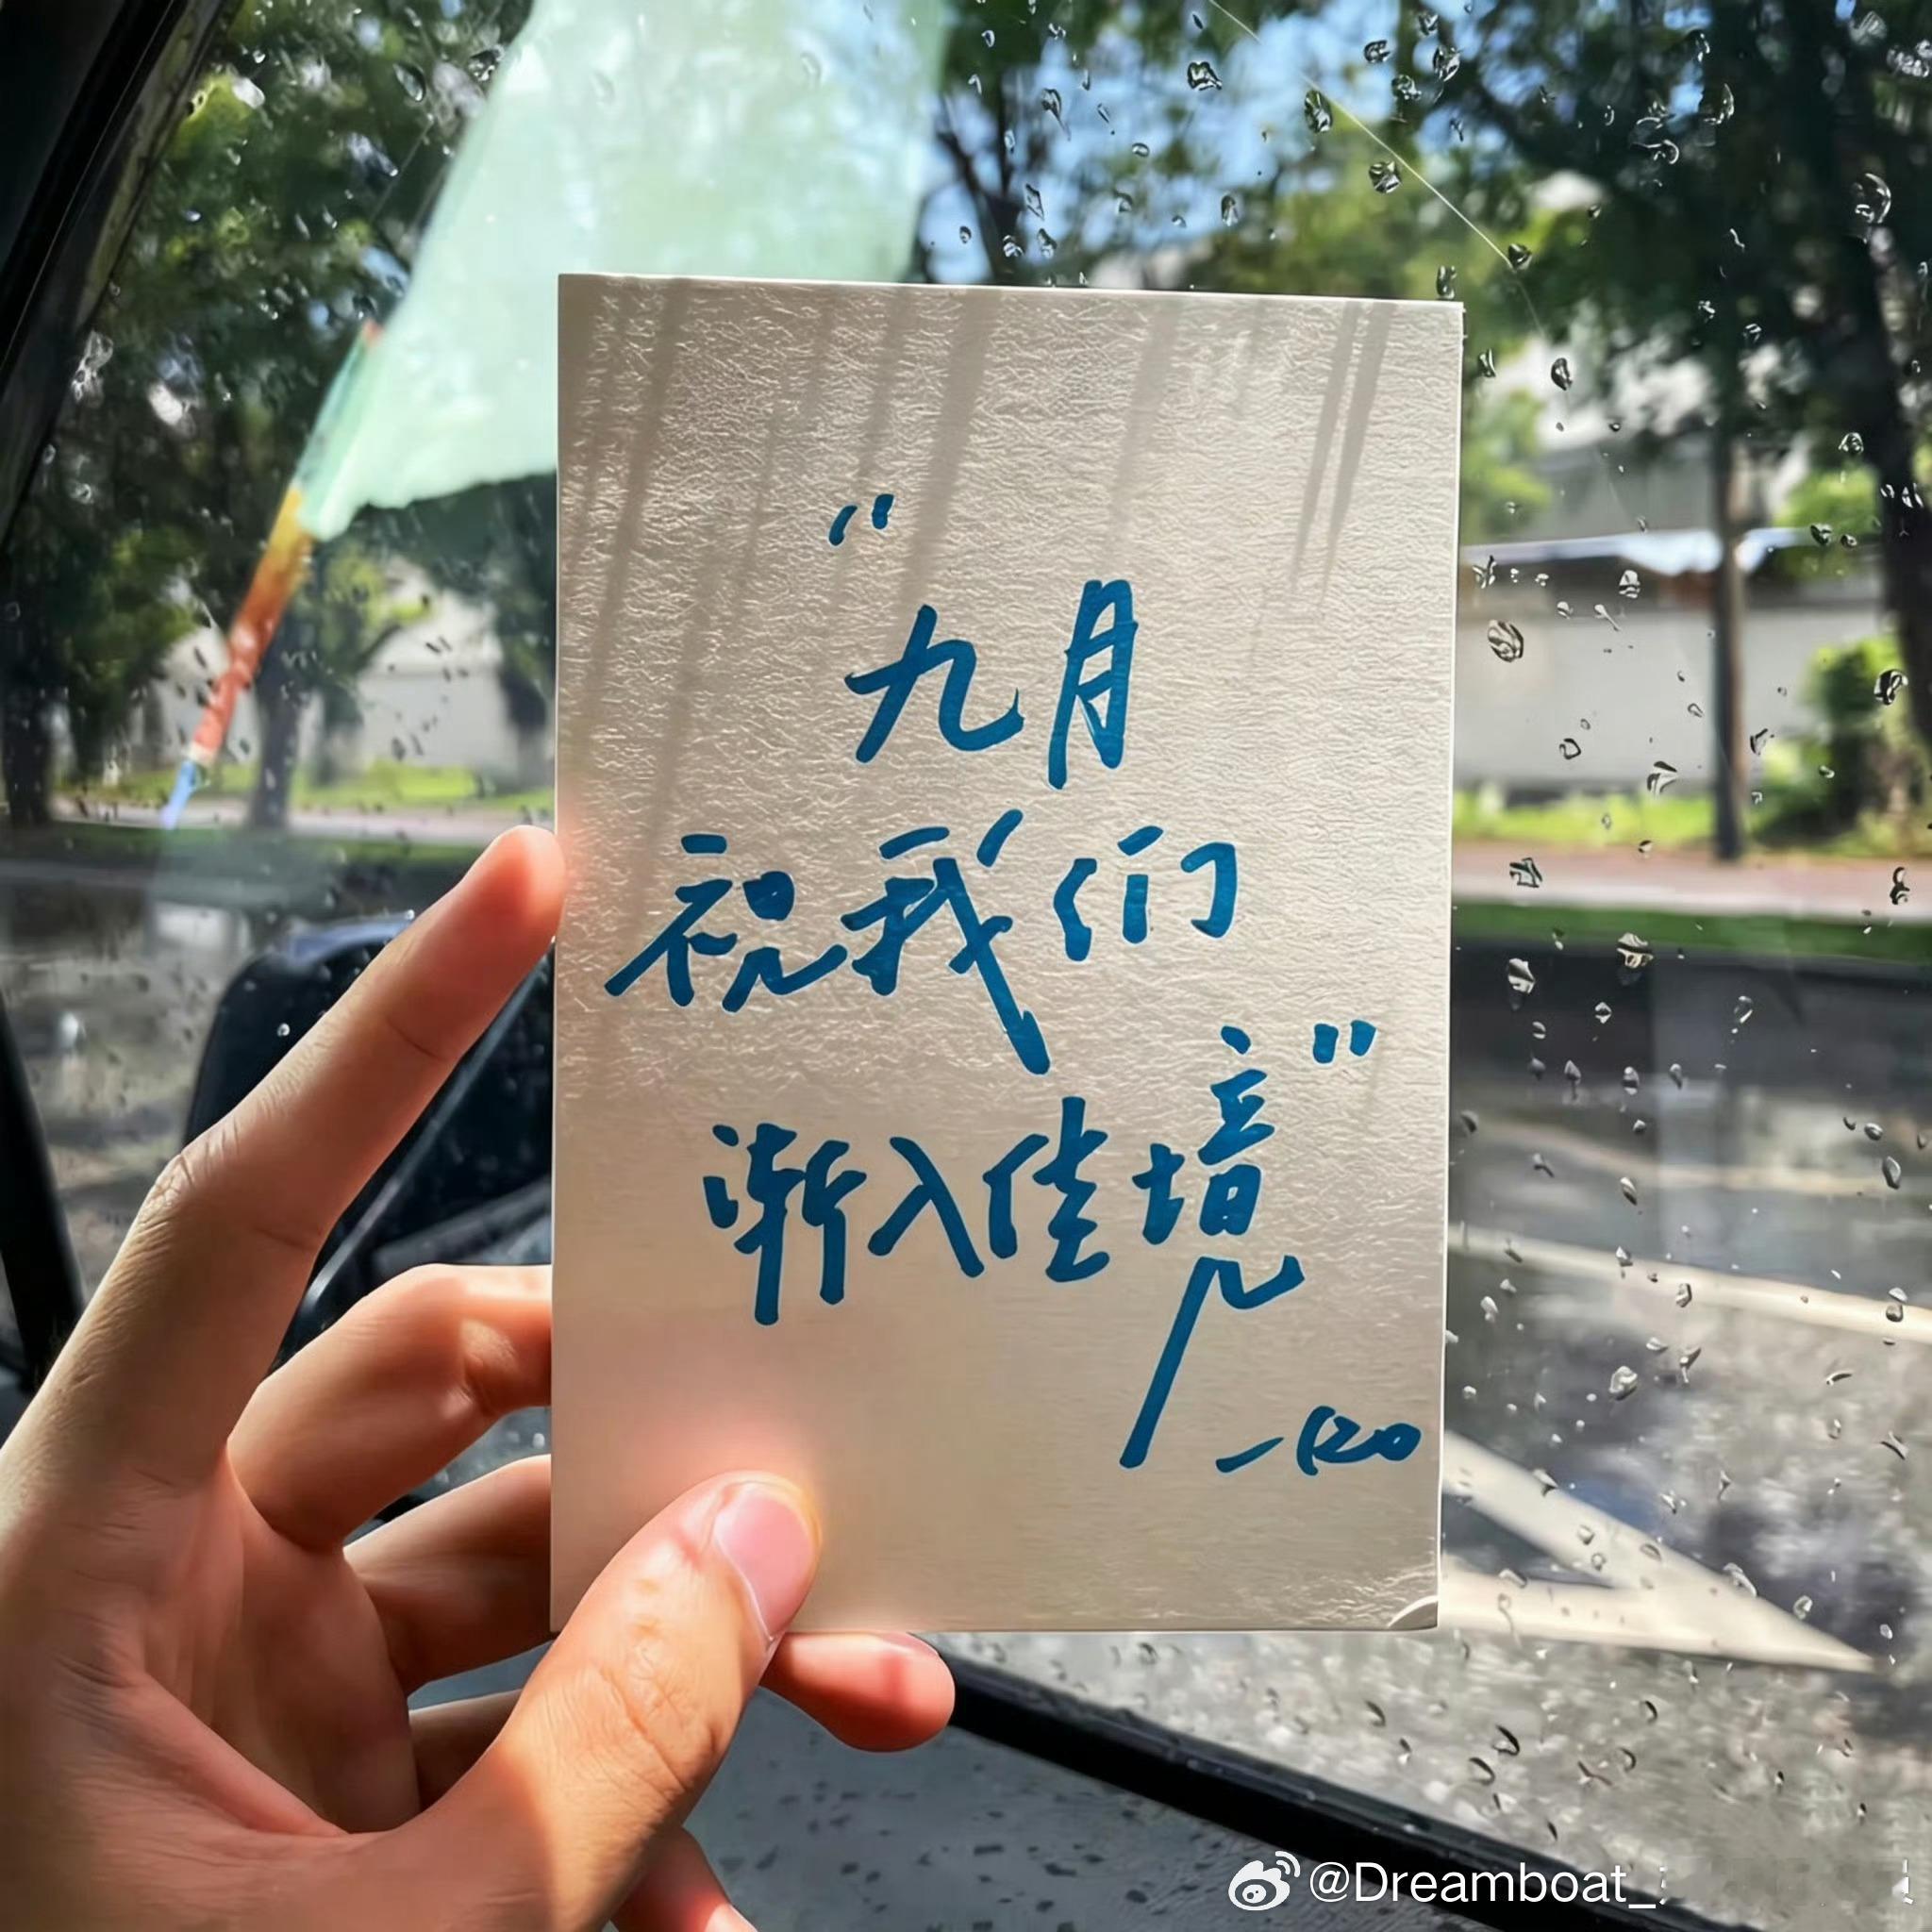 “九月
祝我们
渐入佳境”
@Dreamboat_